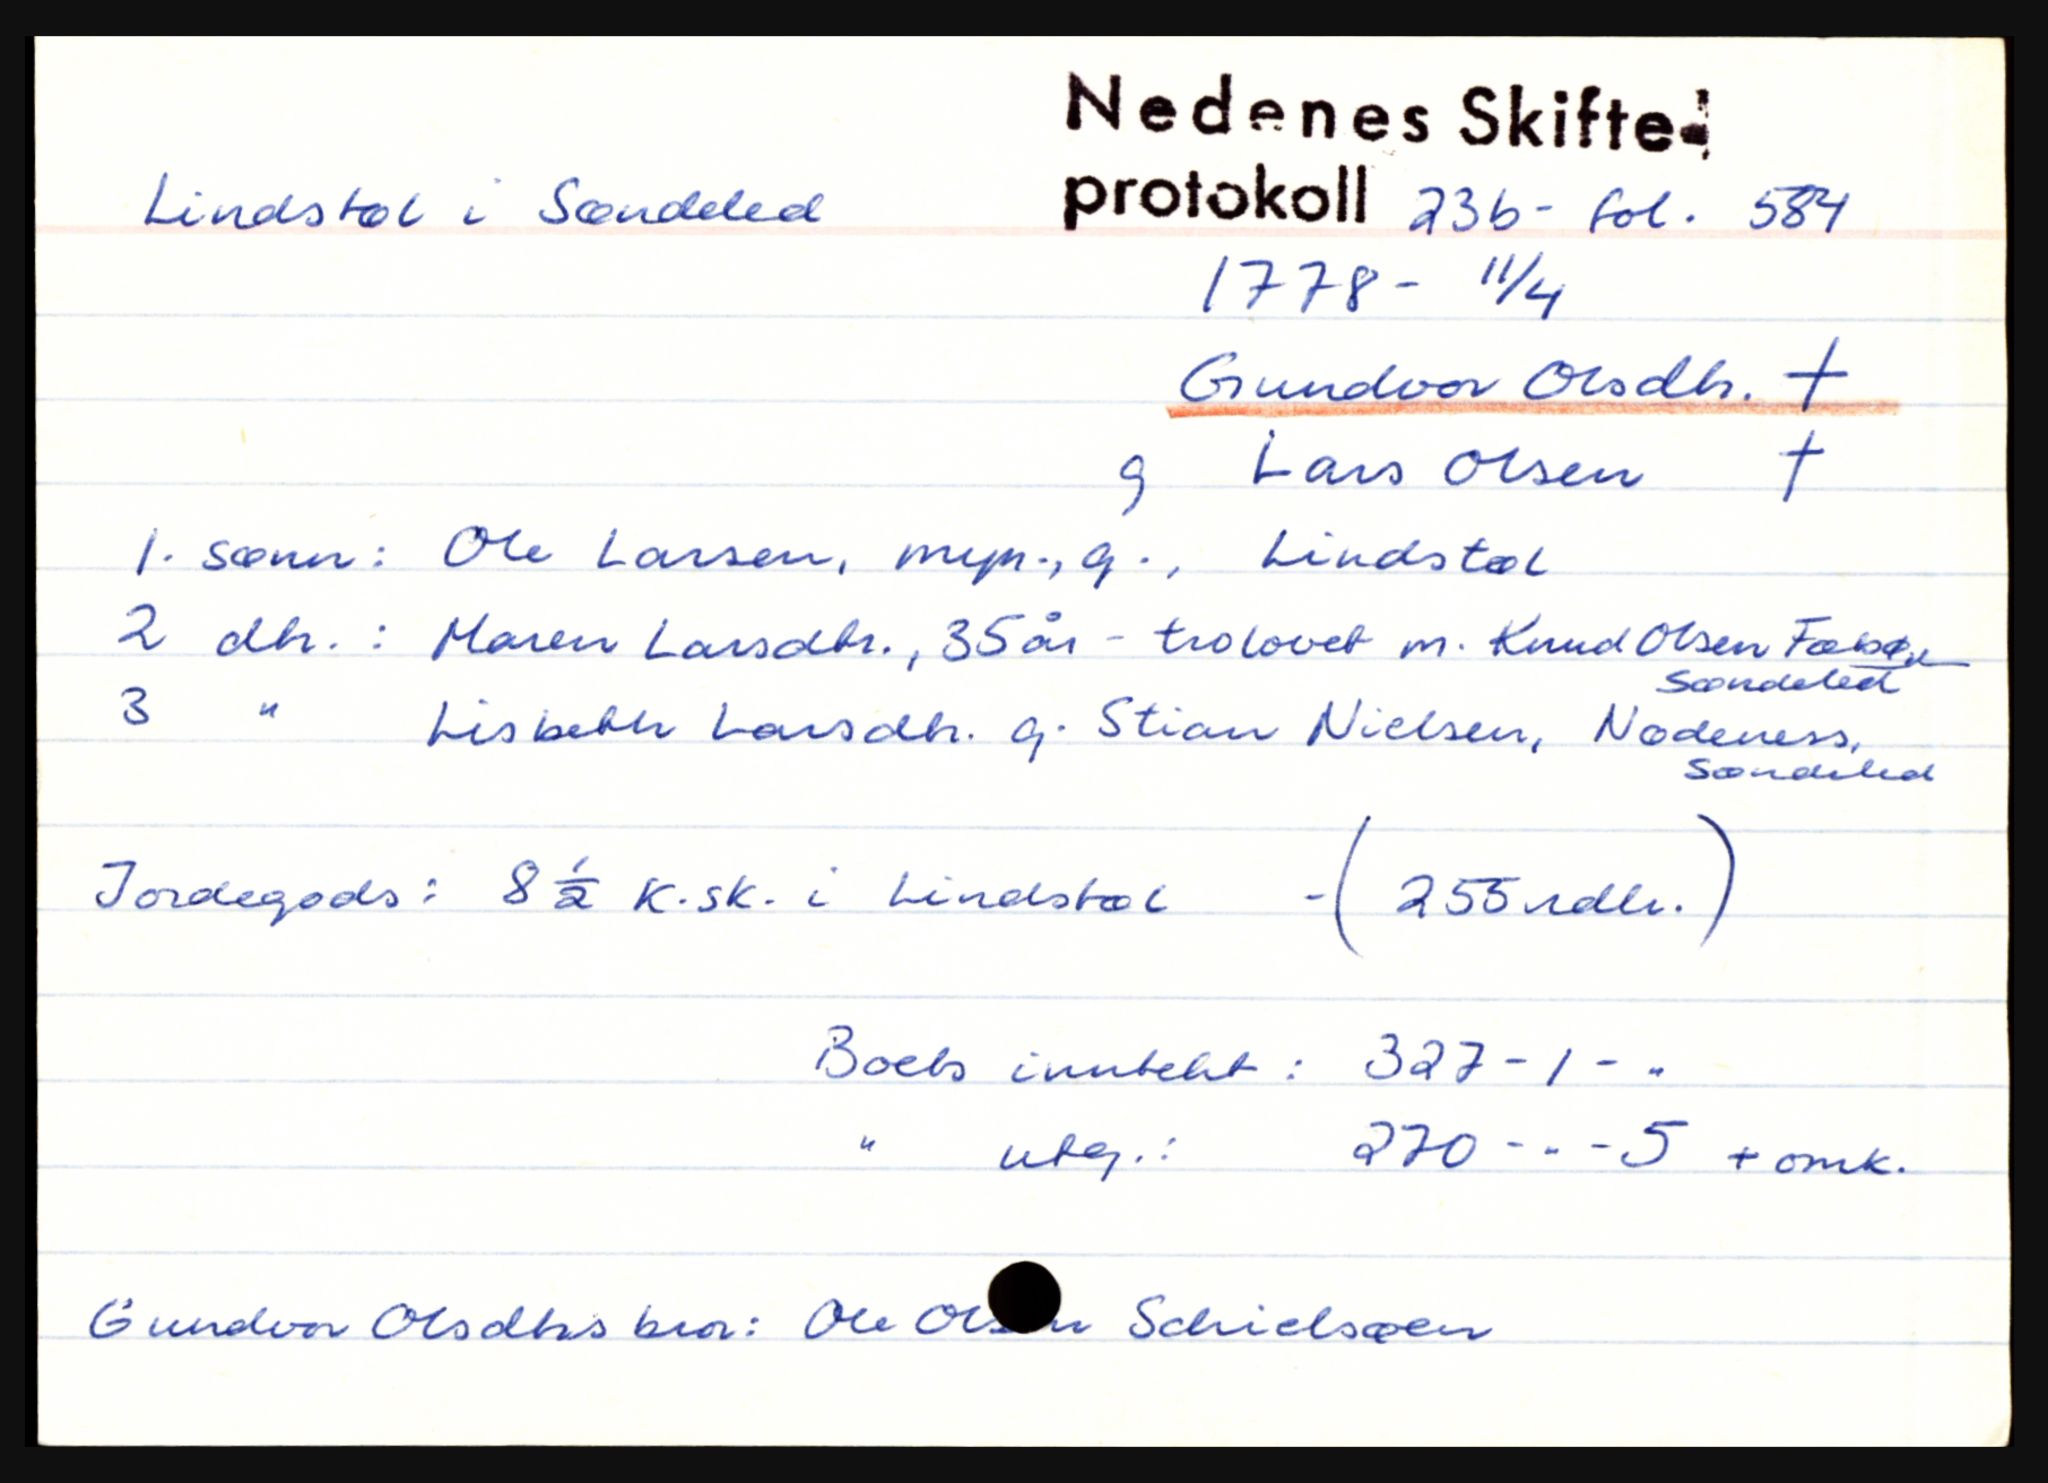 Nedenes Skifte-
protokoll 23b - fol. 584
Lindstøl i Søndeled
1778 - 11/4
Gundvor Olsdtr. †
g Lars Olsen †
1. sønn: Ole Larsen, myn., g., Lindstøl
2 dtr. : Maren Larsdtr., 35 år - trolovet m. Knud Olsen
Søndeled
3 " Lisbeth Larsdtr. g. Stian Nielsen, Nødeness,
Søndeled
Jordegods: 8 1/2 K.sk. i Lindstøl - (255 rdlr.)
Boets inntekt : 327 - 1 - "
" utg.: 270 - " - 5 + omk.
Gundvor Olsdtrs bror: Ole Olsen Schielsøen